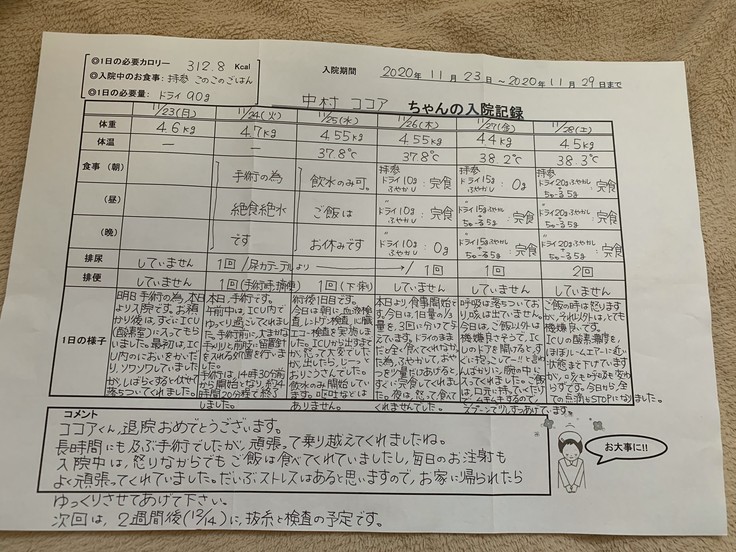 ◎1日の必要カロリー 312.8 Kcal
◎入院中のお食事: 持参 このこのごはん
◎1日の必要量: ドライ 90g
入院期間 2020年11月23日～2020年11月29日まで
中村 ココア ちゃんの入院記録
11/23(日) 11/24(火) 11/25(水) 11/26(木) 11/27(金) 11/28(土)
体重 4.6kg 4.7kg 4.55kg 4.55kg 4.4kg 4.5kg
体温 ー ー 37.8℃ 37.8℃ 38.2℃ 38.3℃
食事(朝) 手術の為 飲水のみ可。 持参 ドライ10gふやかし:完食 持参 ドライ15gふやかし:0g 持参 ドライ20gふやかし ちゅ〜る5g:完食
(昼) 絶食絶水 ご飯は 〃 ドライ10gふやかし:完食 〃 ドライ15gふやかし ちゅ〜る5g:完食 〃 ドライ20gふやかし ちゅ〜る5g:完食
(晩) です お休みです 〃 ドライ10gふやかし:0g 〃 ドライ15gふやかし ちゅ〜る5g:完食 〃 ドライ20gふやかし ちゅ〜る5g:完食
排尿 していません 1回/尿カテーテルより → /1回 1回 2回
排便 していません 1回(手術時、摘便) 1回(下痢) していません していません していません
1日の様子
明日手術の為、本日
より入院です。お預
かり後は、すぐにICU
(酸素室)に入ってもら
いました。最初は、IC
U内のにおいをかいだ
り、ソワソワしていました
が、しばらくすると伏せて
落ちついてくれました。
本日、手術です。
午前中は、ICU内で
ゆっくり過ごしてくれまし
た。手術前に、大まかな
毛刈りと前肢に留置針
を入れる処置を行いま
した。
手術は、14時30分前
から開始となり、約4
時間20分程で終了
しました。
術後1日目です。
今日は朝に、血液検
査、レントゲン検査、心臓
エコー検査を実施しま
した。ICUから出すまで
が、怒って大変でした
が、出したら、じーっと
おりこうさんでした。
飲水のみ開始してい
ます。嘔吐などは
ありません。
本日より、食事開始で
す。今日は、1日量の1/3
量を、3回に分けて与
えています。ドライのまま
だと全く食べてくれなかっ
た為、ふやかして、おや
つを少量だけあげると、
すぐに完食してくれまし
た。夜は、怒って食べて
くれませんでした。
呼吸は落ちついてお
り、咳は出ていません。
今日は、ご飯以外は
機嫌良さそうで、IC
Uのドアを開けると、す
ぐに抱っこして!!と言わ
んばかりに、腕の中に
入ってくれました。ご飯
は、口元に持っていくだ
ご飯の時は怒ります
が、それ以外は、とても
機嫌良いです。
ICUの酸素濃度を、
ほぼルームエアーに近い
状態まで下げています
が、咳も呼吸も変わ
らずです。今日から、全
ての点滴もSTOPになりました。
コメント
ココアくん、退院おめでとうございます。
長時間にも及ぶ手術でしたが、頑張って乗り越えてくれましたね。
入院中は、怒りながらでもご飯は食べてくれていましたし、毎日のお注射も
よく頑張ってくれていました。だいぶストレスはあると思いますので、お家に帰られたら
ゆっくりさせてあげて下さい。
次回は、2週間後(12/14)に、抜糸と検査の予定です。
お大事に!!